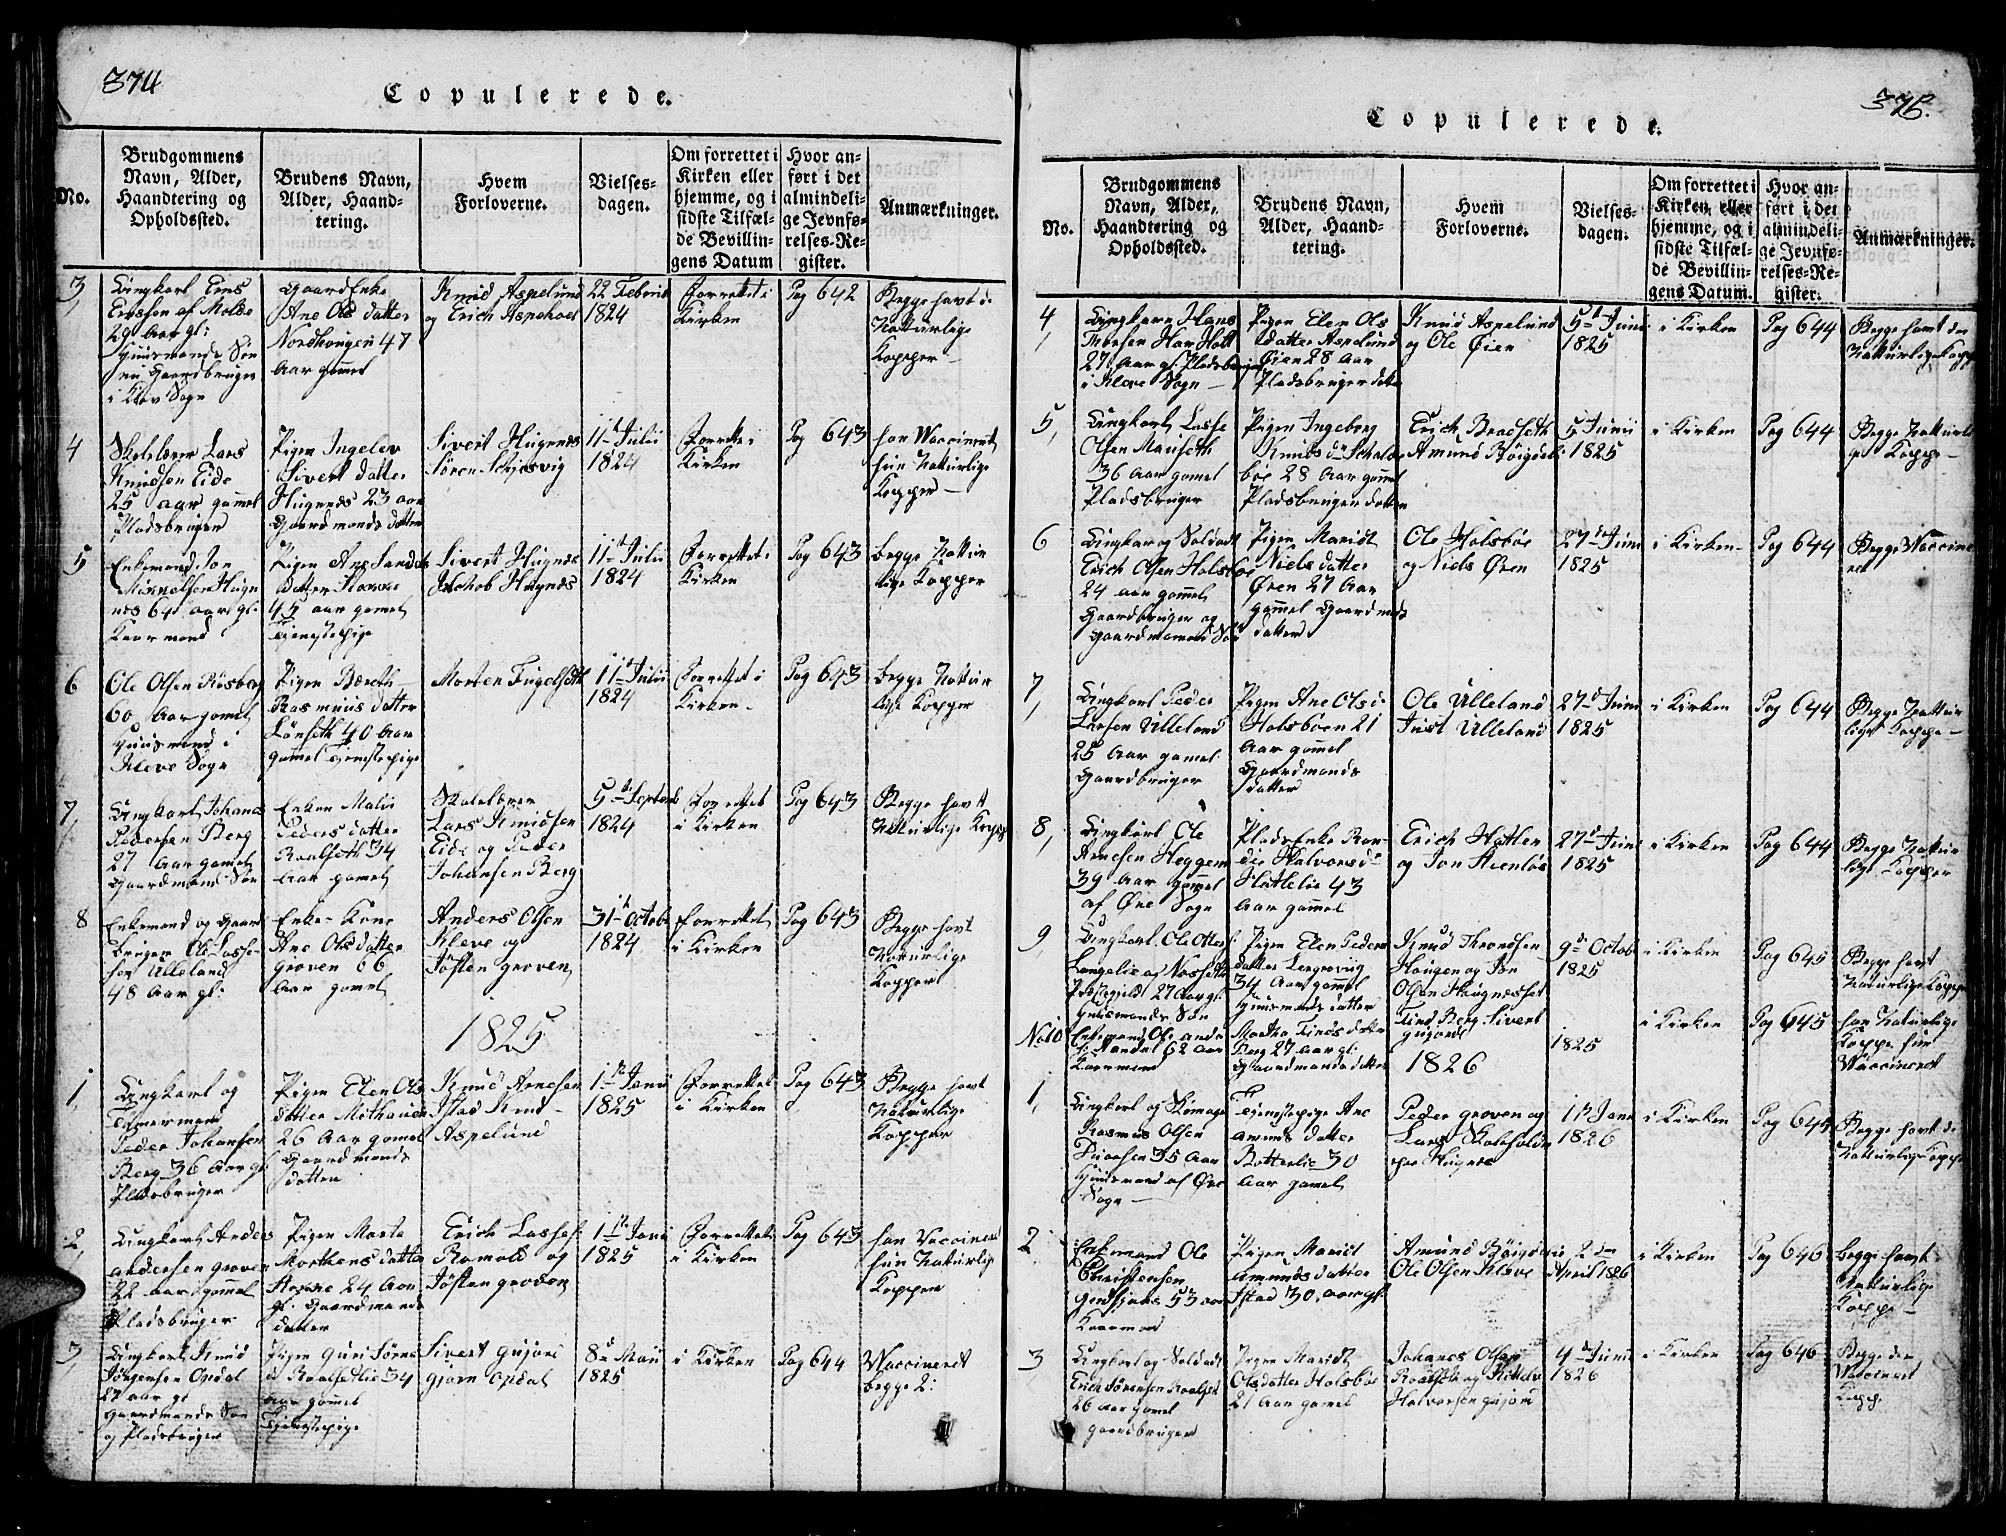 374
Copulerede.
No.
Brudgommens
Navn, Alder,
Haandtering og
Opholdssted.
Brudens Navn,
Alder, Haand-
tering.
Hvem
Forloverne.
Vielses-
dagen.
Om forrettet i
Kirken eller
hjemme, og i
sidste Tilfæl-
de Bevillin-
gens Datum
Hvor an-
ført i det
almindeli-
ge Jevnfø-
relses-Re-
gister.
Anmærkninger.
3,
Ungkarl
af Molde
29 Aar gl:
Huusmands Søn
nu Gaardbruger
i Klev Sogn
Gaard Enke
Ane Ols datter
Nordhougen 47
Aar gamel
Knud Aspelund
og Erich Aspehoel
22 Februar
1824
Forrettet i
Kirken
Pag 642
Begge havt de
Naturlige
Kopper
4
Skolelærer Lars
Knudsen Eide
25 aar gammel
Pladsbruger
Pigen Ingelev
Sivert datter
Hugnæs 23 aar
Gaardmands datter
Sivert Hugnes
Søren
11t Julii
1824
Forrettet i
Kirken
Pag 643
han Waccineret
hun Naturlige
Kopper
5
Enkemand Jon
64 aar gl.
Kaarmand
Pigen Ane
datter
45 aar gamel
Tjenestepige
Sivert Hugnes
Jachob Hugnæs
11t Julii
1824
Forrettet i
Kirken
Pag 643
begge Natur
lige Kopper
6
Ole Olsen Røsberg
60 Aar gamel
Huusmand i
Kleve Sogn
Pigen Bereth
Rasmuus datter
Lønseth 40 Aar
gamel Tjenestepige
Morten Fugelseth
11t Julii
1824
Forrettet i
Kirken
Pag 643
begge Natur
lige Kopper
7,
Ungkarl Johanes
Pedersen Berg
27 Aar gamel
Gaardmand Søn
Enken Malii
Peders datter
Roalseth 34
Aar gamel
Skolelærer
Lars Knudsen
Eide og Peder
Johansen Berg
5te Septemb
1824
Forrettet
i Kirken
Pag 643
Begge havt
Naturlige Kopp
8
Enkemand og Gaard
bruger Ole Lasse-
sen Ulleland
48 Aar gl:
Enke-Kone
Ane Olsdatter
Groven 66
Aar gamel
Anders Olsen
Kleve og
Jøsten Groven
31t Octob
1824
Forrettet
i Kirken
Pag 643
Begge havt
Naturlige
Kopper
1825
1,
Ungkarl og
Tømermand
Peder Johansen
Berg 36 Aar gl.
Pladsbruger
Pigen Elen Ols
datter
26 Aar gamel
Gaardmands
datter
Knud Arnesen
Istad Knud
Aspelund
1te Janu
1825
Forrettet
i Kirken
Pag 643
Begge havt
Naturlige
Kopper
2,
Ungkarl Anders
Andersen Groven
22 aar gammel
Pladsbruger
Pigen Marte
Morthens datter
24 Aar
gl. Gaardmands
datter
Erich Lasses
og
Jøsten Groven
1te Janu
1825
Forrettet
i Kirken
Pag 643
han Vaccineret
hun Naturlige
Kopper
3,
Ungkarl Knud
Jørgensen Opdal
27 aar gl
Gaardmands Søn
og Pladsbruger
Pigen Guri Sørens
d Roalsethlie 34
Aar gammel
Tjenestepige
Sivert Gujord
Gjørn Opdal
8de Maii
1825
i Kirken
Pag 644
Vaccineret
begge 2:
375.
Copulerede.
No.
Brudgommens
Navn, Alder,
Haandtering og
Opholdssted.
Brudens Navn,
Alder, Haand-
tering.
Hvem
Forloverne.
Vielses-
dagen.
Om forrettet i
Kirken eller
hjemme, og i
sidste Tilfæl-
de Bevillin-
gens Datum.
Hvor an-
ført i det
almindeli-
ge Jevnfø-
relses-Re-
gister.
Anmærkninger.
4,
Ungkarl Hans
27 Aar gl. Pladsbruger
i Kleve Sogn
Pigen Elen Ols
datter Aspelund
Øien 28 Aar
Pladsbruger datter
Knud Aspelund
og Ole Øien
5te Junii
1825
i Kirken
Pag 644
Begge havt den
Naturlige Kopp
5,
Ungkarl Lasse
Olsen Mauseth
36 Aar gamel
Pladsbruger
Pigen Ingeborg
Knuds dr
28 Aar gamel
Pladsbrugen datter
Erich Bradseth
Amund
5 Junii
1825
i Kirken
Pag 644
Begge Naturl
ge Kopp
6
Ungkar og Soldat
Erich Olsen Holsbøe
24 aar gammel
Gaardbruger og
Gaardmand Søn
Pigen Maridt
Niels datter
Øren 27 Aar
gammel Gaardmands
datter
Ole Holsbøe
og Niels Øren
27de Juni
1825
i Kirken
Pag 644
Begge Waccine
ret
7,
Ungkarl Peder
Larsen Ulleland
25 Aar gamel
Gaardbruger
Pigen Ane Ols d
Holsbøen 21
Aar gammel
Gaardmands
datter
Ole Ulleland
Just Ulleland
27de Juni
1825
i Kirken
Pag 644
Begge Natur
lige Koppe
8,
Ungkarl Ole
Arnesen Heggem
39 Aar gammel
af Øre Sogn
Plads Enke Ran-
die Halvorsd
Hatlelie 43
Aar gammel
Erich Hatlen
og Jon
27de Juni
1825
i Kirken
Pag 644
Begge Natur
lige Kopper
9,
Ungkarl Ole Otters
Langelie af
Præstegjeld 27 Aar gl.
Huusmands Søn
Pigen Elen Peders
datter
34 Aar gamel
Huusmands datter
Knud Throndsen
Haugen og Jon
Olsen
9de Octob
1825
i Kirken
Pag 645
Begge havt
Naturlige Kopp
No 10
Enkemand Ole
62 aar
Kaarmand
Martha Finds datter
Berg 27 Aar gl:
Gaardmands datter
Find Berg Sivert
Gujord
1825
i Kirken
Pag 645
han Naturlige
Koppe hun
Waccineret
1826
1,
Ungkarl og Skomager
Rasmus Olsen
35 Aar
Huusmand af Øre
Sogn
Tjenestepige Ane
Amunds datter
Botterlie 30
Aar gamel
Peder Groven og
Lars Skoleholder
paa Hugnes
1te Janr
1826
i Kirken
Pag 645
Begge havt de
Naturlige Kopp
2
Enkemand Ole
Christensen
53 aar
Kaarmand
Pigen Maridt
Amunds datter
Istad 30 aar gl
Amund
Ole Olsen Kleve
2den
April 1826
i Kirken
Pag 646
begge havt
Naturlige
Koppe
3
Ungkarl og Soldat
Erich Sørensen Roalset
26 aar gamel
Gaardbruger
Pigen Maridt
Olsdatter Holsbøe
21 Aar gamel
Johanes Olsen
Roalseth og
Halvorsen Gujord
4de Junii
1826
i Kirken
Pag 646
Begge den
Waccineret
Kopp.